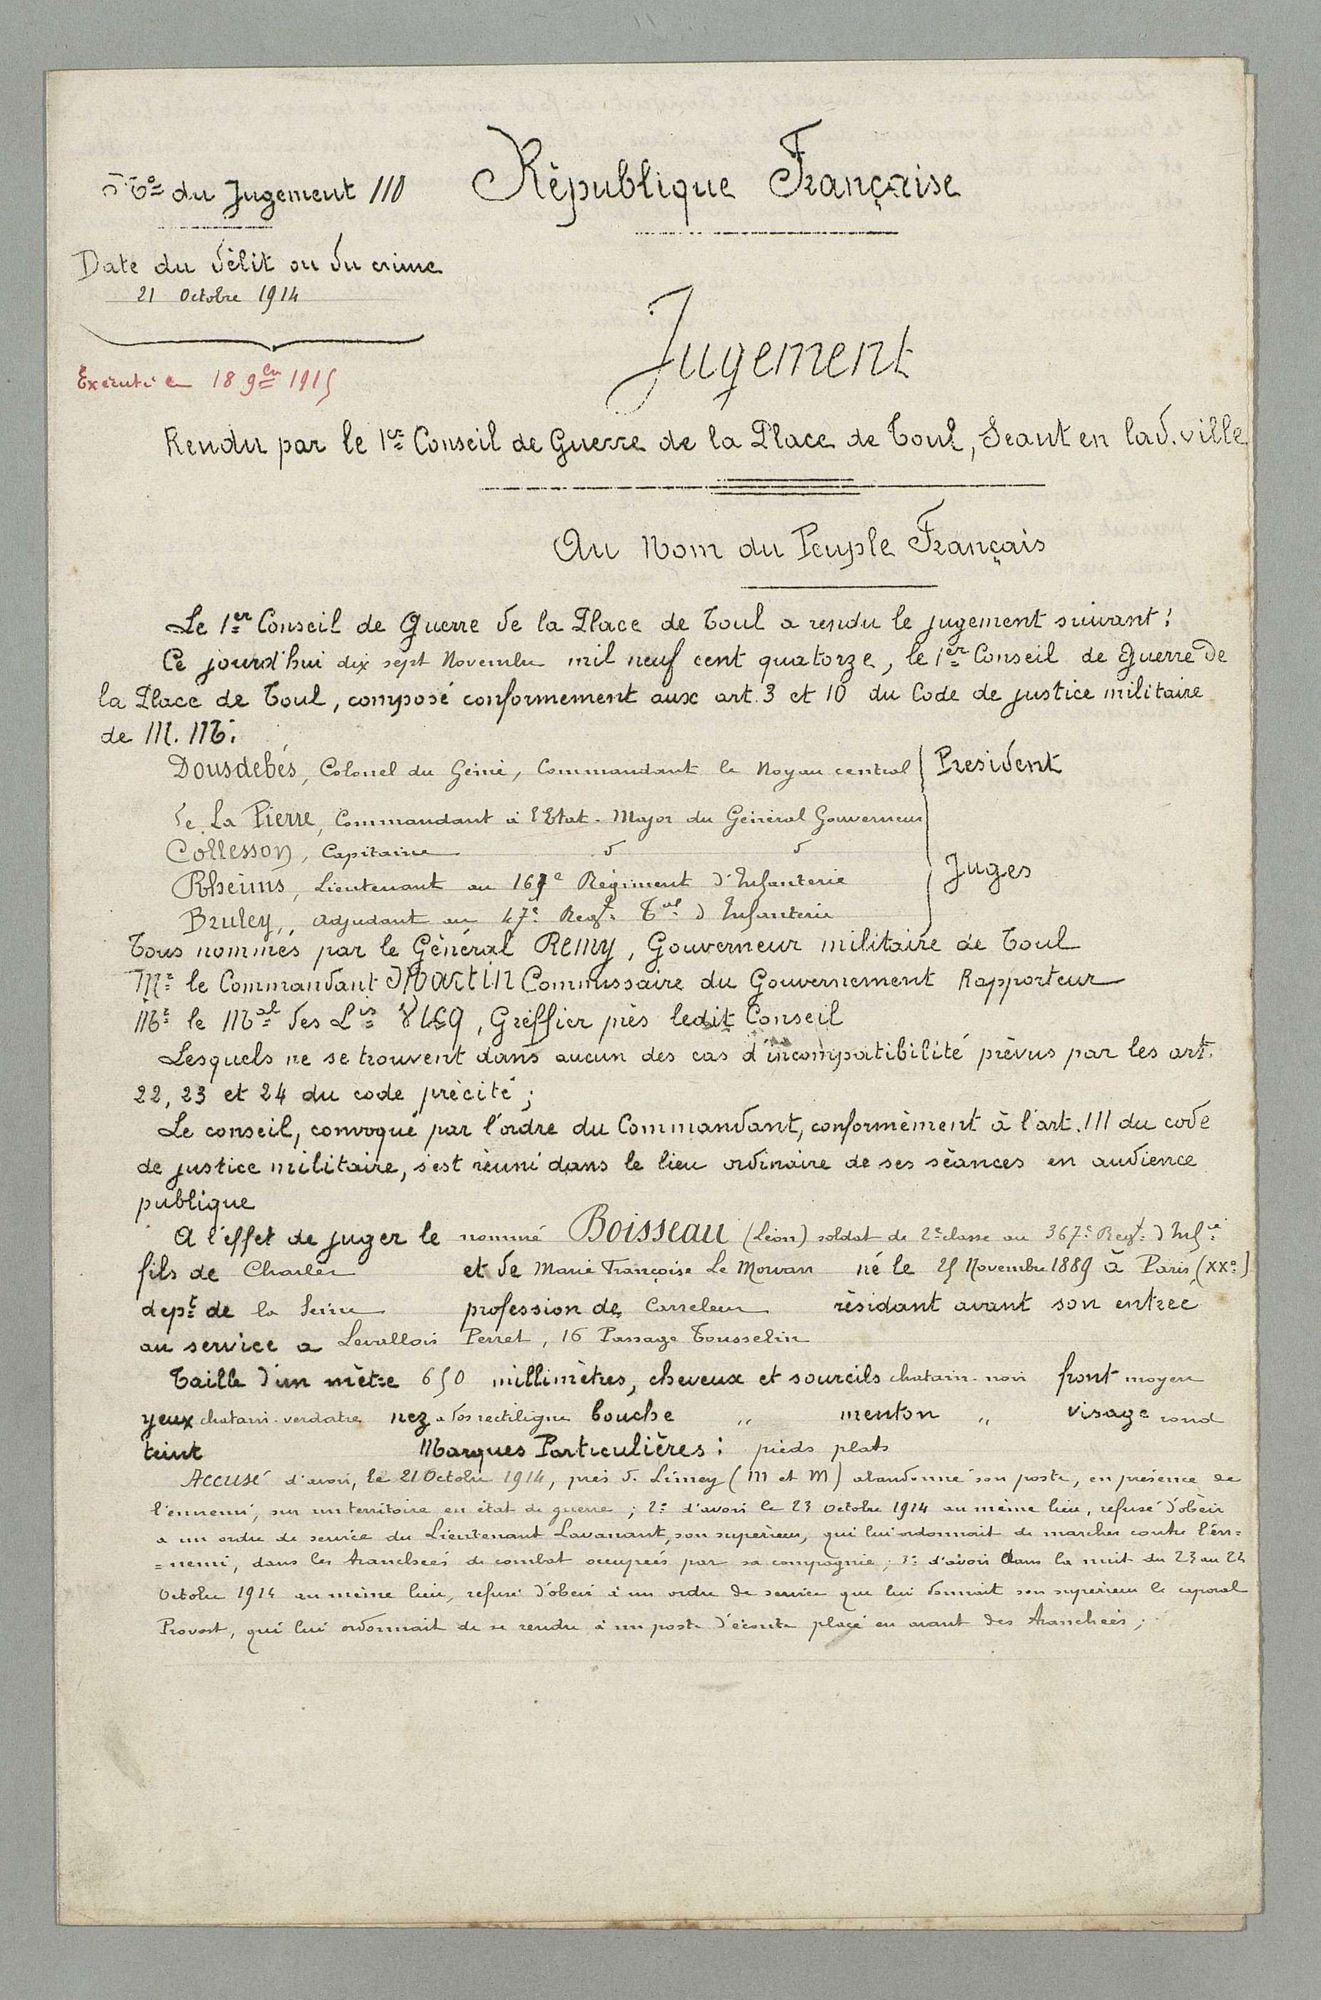 No du Jugement 110
République Française
Date du délit ou du crime
21 Octobre 1914
Exécuté le 18 9bre 1915
Jugement
Rendu par le 1er Conseil de Guerre de la Place de Toul, Séant en lad. ville
Au Nom du Peuple Français
Le 1er Conseil de Guerre de la Place de Toul a rendu le jugement suivant :
Ce jourd'hui dix sept Novembre mil neuf cent quatorze, le 1er Conseil de Guerre de
la Place de Toul, composé conformement aux art. 3 et 10 du Code de justice militaire
de M. M. :
Dousdebés, Colonel du Génie, Commandant le Noyau central
Président
de La Pierre, Commandant à l'Etat-Major du Général Gouverneur
Collesson, Capitaine d d
Juges
Rheims, Lieutenant au 167e Régiment d'Infanterie
Bruley, Adjudant au 47e Regt Tal d'Infanterie
Tous nommés par le Général Remy, Gouverneur militaire de Toul
Mr le Commandant Martin Commissaire du Gouvernement Rapporteur
Mr le Mal des Lis, Greffier près ledit Conseil
Lesquels ne se trouvent dans aucun des cas d'incompatibilité prévus par les art.
22, 23 et 24 du code précité ;
Le conseil, convoqué par l'ordre du Commandant, conformément à l'art. 111 du code
de justice militaire, s'est réuni dans le lieu ordinaire de ses séances en audience
publique
A l'effet de juger le nommé Boisseau (Léon) soldat de 2e classe au 367e Regt d'Infie
fils de Charles et de Marie Françoise Le Morvan né le 25 Novembre 1889 à Paris (XXe)
dept de la Seine profession de Carreleur résidant avant son entrée
au service a Levallois Perret, 16 Passage Tousselin
Taille d'un mètre 650 millimètres, cheveux et sourcils chatain-noir front moyen
yeux chatain-verdatre nez a dos rectiligne bouche " menton " visage rond
teint Marques Particulières : pieds plats
Accusé d'avoir, le 21 Octobre 1914, près d. Limey (M et M) abandonné son poste, en présence de
l'ennemi, sur un territoire en état de guerre ; 2° d'avoir le 23 octobre 1914 au même lieu, refusé d'obéir
a un ordre de service du Lieutenant Lavanant, son supérieur, qui lui ordonnait de marcher contre l'en-
=nemi, dans les tranchées de combat occupées par sa compagnie ; 3° d'avoir dans la nuit du 23 au 24
Octobre 1914 au même lieu, refusé d'obéir à un ordre de service que lui donnait son supérieur le caporal
Provost, qui lui ordonnait de se rendre à un poste d'écoute placé en avant des tranchées ;